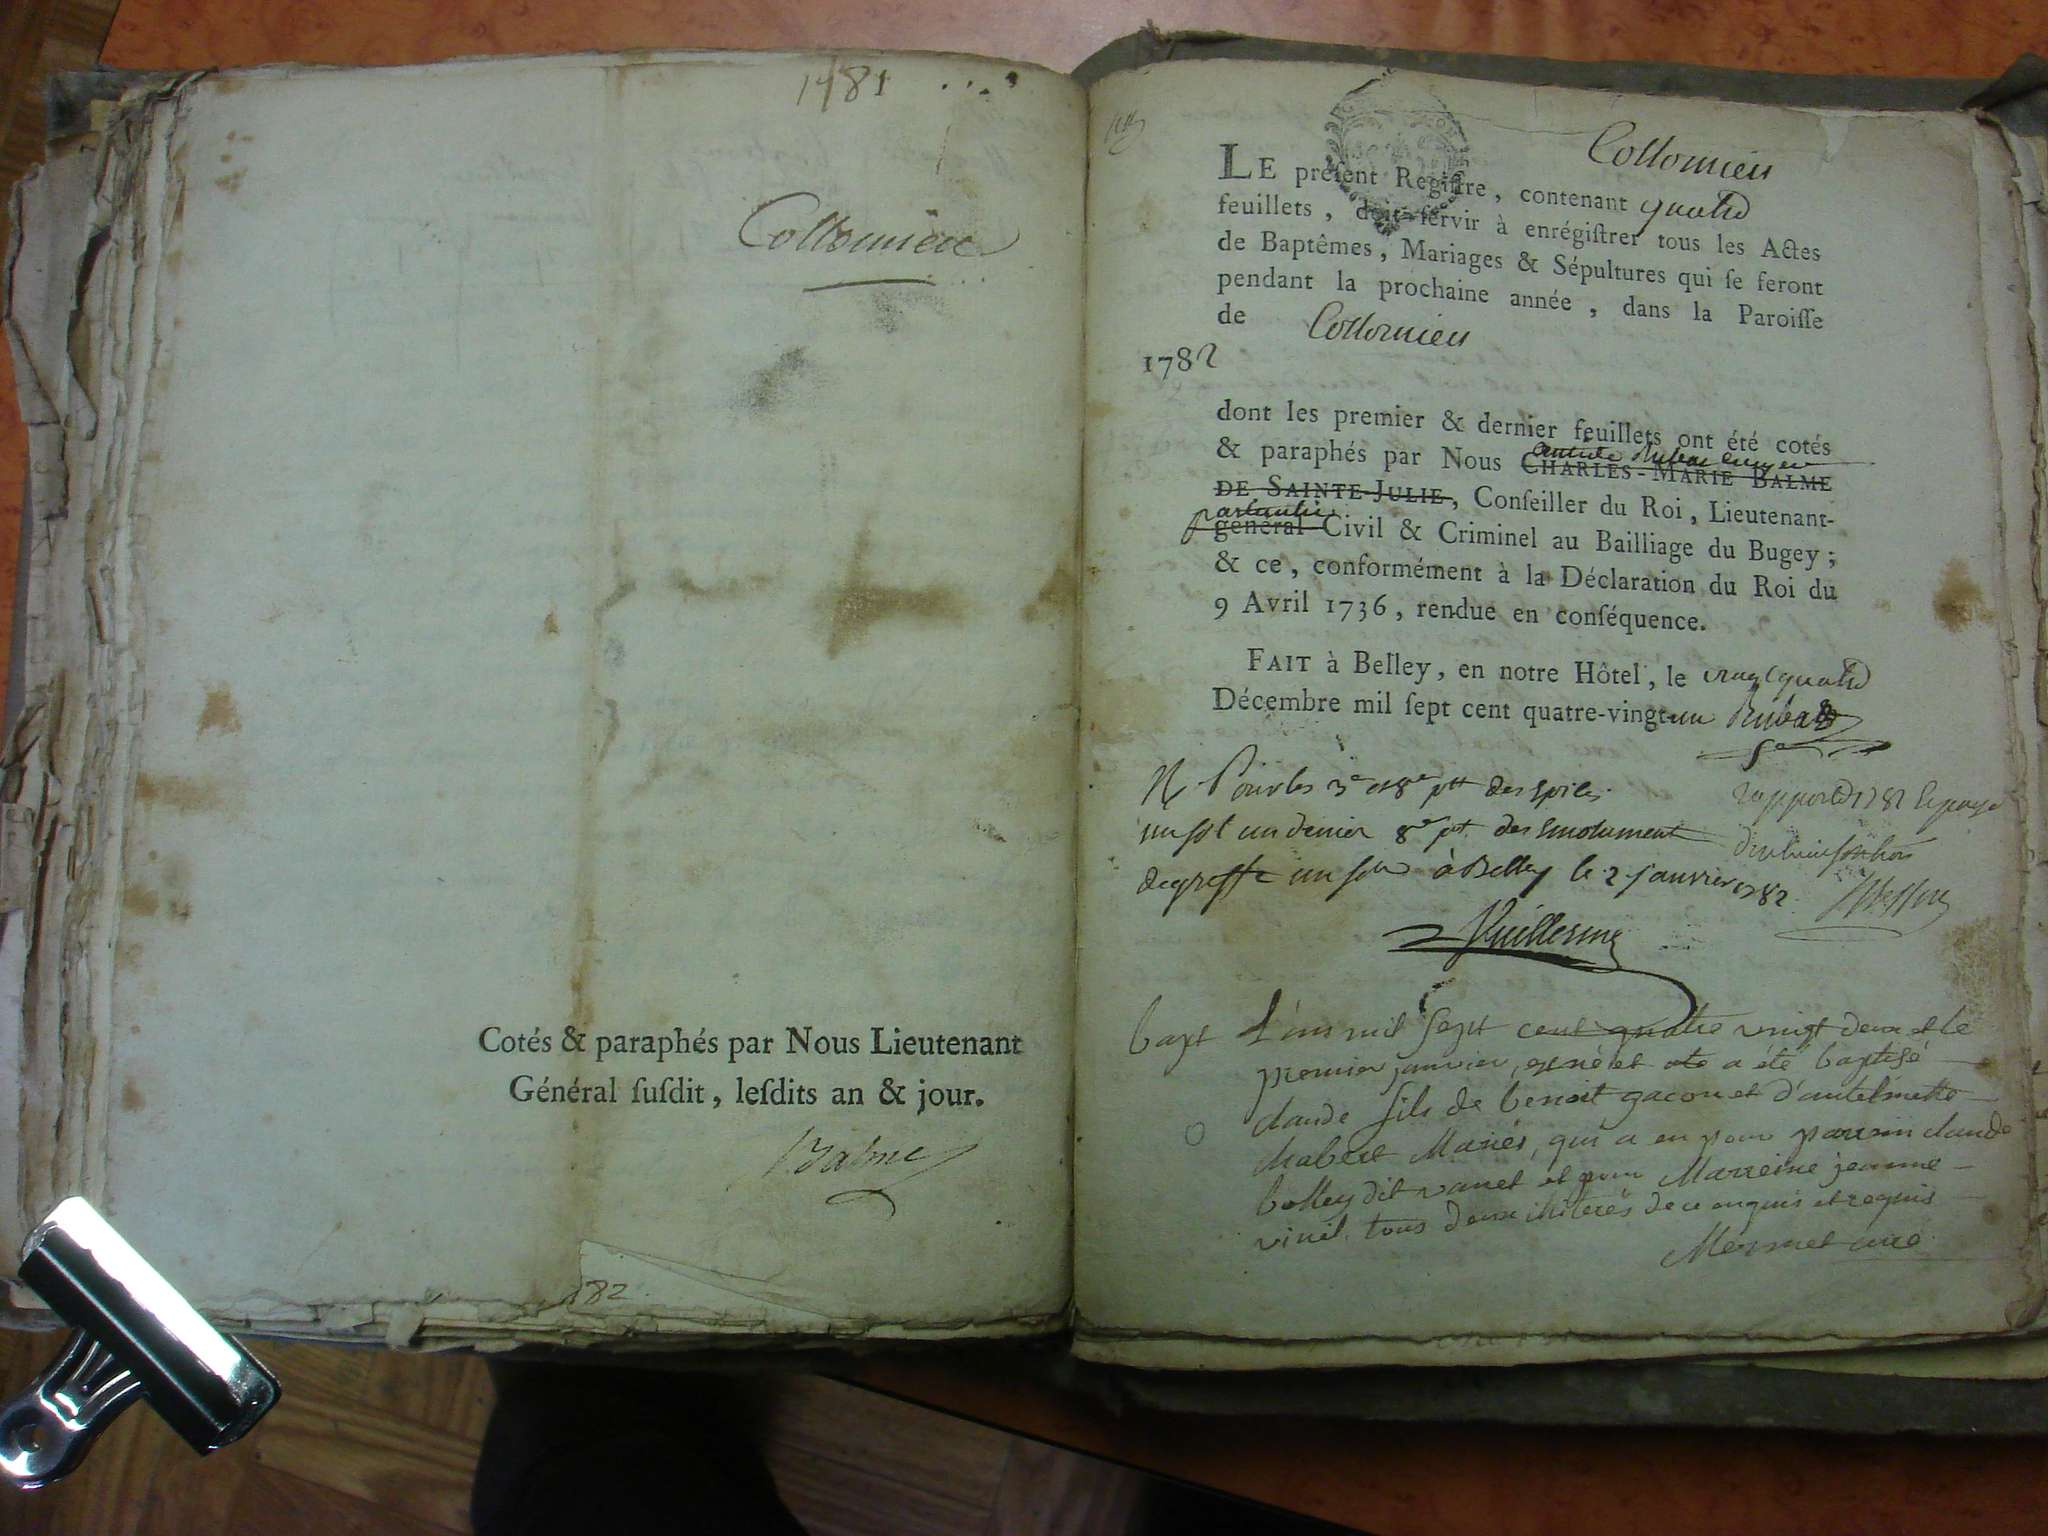 1781
Collomieu
Cotés & paraphés par Nous Lieutenant
Général ſuſdit, leſdits an & jour.
Balme
182
Collomieu
LE préſent Regiſtre, contenant quatre
feuillets, doit ſervir à enrégiſtrer tous les Actes
de Baptêmes, Mariages & Sépultures qui ſe feront
pendant la prochaine année, dans la Paroiſſe
de Collomieu
1782
dont les premier & dernier feuillets ont été cotés
& paraphés par Nous CHARLES-MARIE BALME
DE SAINTE-JULIE, Conſeiller du Roi, Lieutenant-
particulier
général Civil & Criminel au Bailliage du Bugey;
& ce, conformément à la Déclaration du Roi du
9 Avril 1736, rendue en conſéquence.
FAIT à Belley, en notre Hôtel, le vingt quatre
Décembre mil ſept cent quatre-vingt-un Rubat
R. Pour les 3e et 8e ptt des Epices
un sol un denier 8e pt. des Emolument
de greffe un sou à Belley le 2 janvier 1782
Vuillerme
bapt L'an mil sept cent quatre vingt deux et le
premier janvier, est né et a été baptisé
claude fils de benoit gacon et d'antelmette
chabert Mariés, qui a eu pour parrain claude
bolley dit vanet et pour Marreine jeanne
vinil tous deux illiterés de ce enquis et requis
Mermet curé